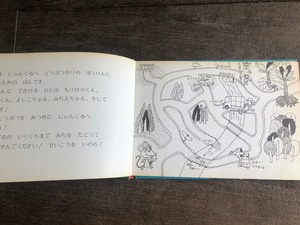 は じゃんぐるへ どうぶつがりの ぼうけんに
ための ほんです。
んに でかける ひとは もりひろくん。
くん。よしこちゃん。みちえちゃん。そして
す！
どうぶつを あつめに じゃんぐるへ
！
るの いりぐちまで みちを たどって
すんでください！ せいこうを いのる！